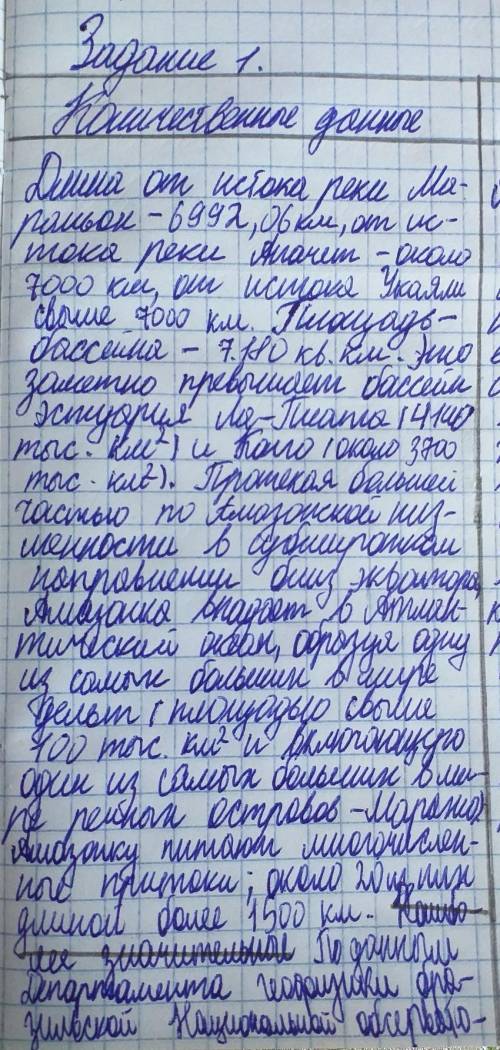 Задание 1.
Количественные данные
Длина от истока реки Ма-
раньон - 6992,06 км, от ис-
тока реки Апачет - около
7000 км, от истока Укаяли
свыше 7000 км. Площадь-
бассейна - 7.180 кв. км. Это
заметно превышает бассейн
эстуария Ла-Плата (4140
тыс. км²) и Конго (около 3700
тыс. км²). Протекая большей
частью по Амазонской низ-
менности в субширотном
направлении близ экватора,
Амазонка впадает в Атлан-
тический океан, образуя одну
из самых больших в мире
дельт (площадью свыше
100 тыс. км² и включающую
один из самых больших в ми-
ре речных островов - Маражо)
Амазонку питают многочислен-
ные притоки; около 20 из них
длиной более 1500 км. Наибо-
лее значительные По данным
Департамента геофизики бра-
зильской Национальной обсервато-